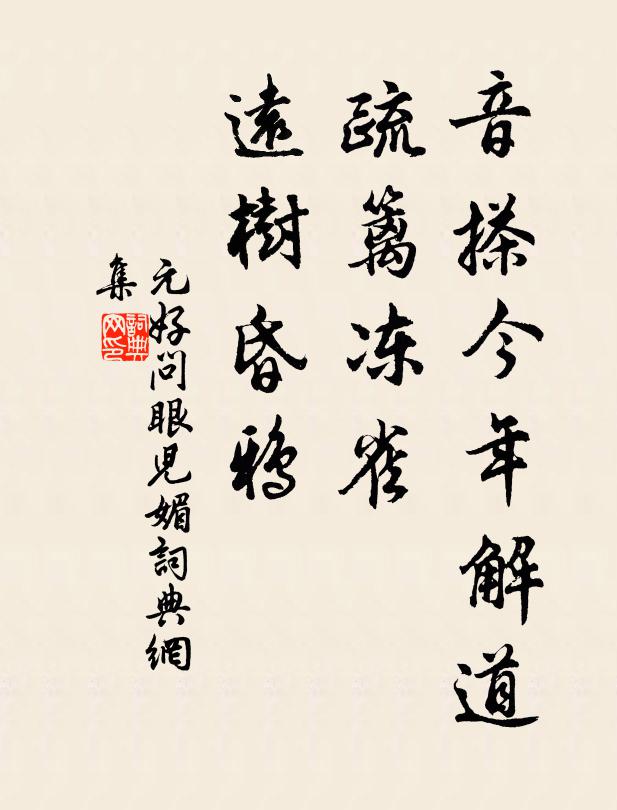 音搽今年解道
疏籬凍雀
遠樹昏鴉
元好问眼兒媚詞典網
集
詞典网印